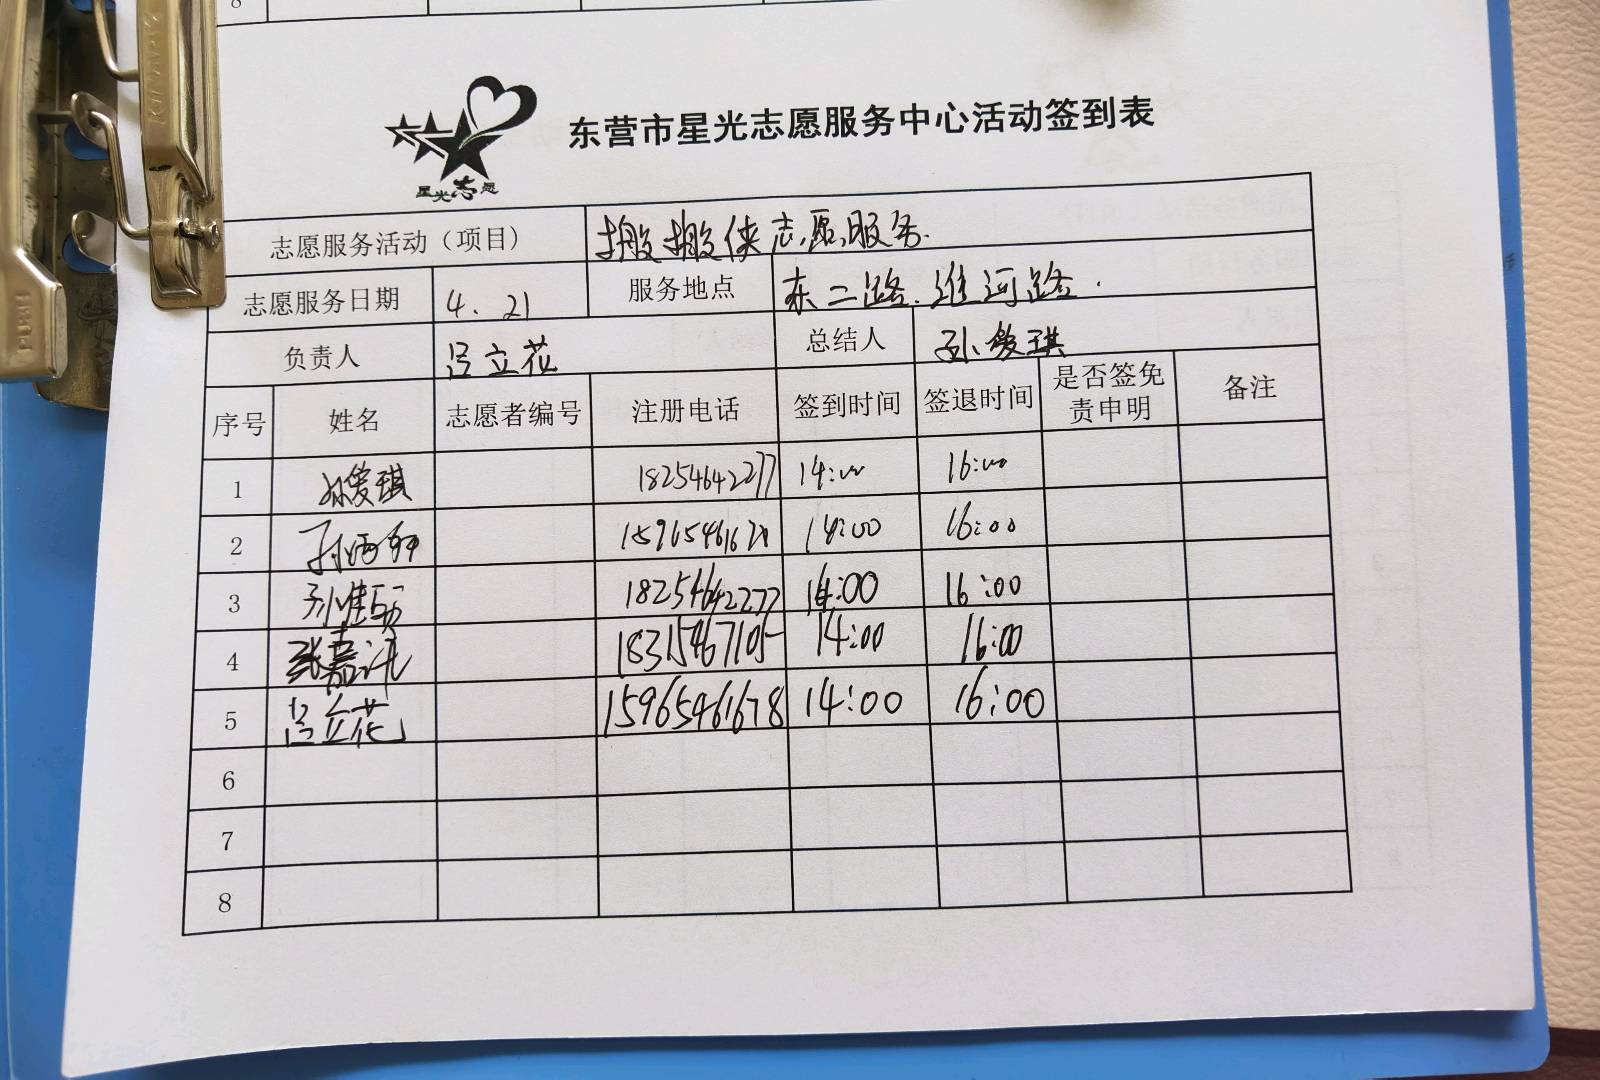 8
东营市星光志愿服务中心活动签到表
星光志愿
志愿服务活动（项目） 搬搬侠志愿服务.
志愿服务日期 4.21 服务地点 东二路.潍河路.
负责人 吕立花 总结人 孙爱琪
序号 姓名 志愿者编号 注册电话 签到时间 签退时间 是否签免责申明 备注
1 孙爱琪 18254642277 14:00 16:00
2 14:00 16:00
3 18254642277 14:00 16:00
4 18315467105 14:00 16:00
5 吕立花 15965461678 14:00 16:00
6
7
8